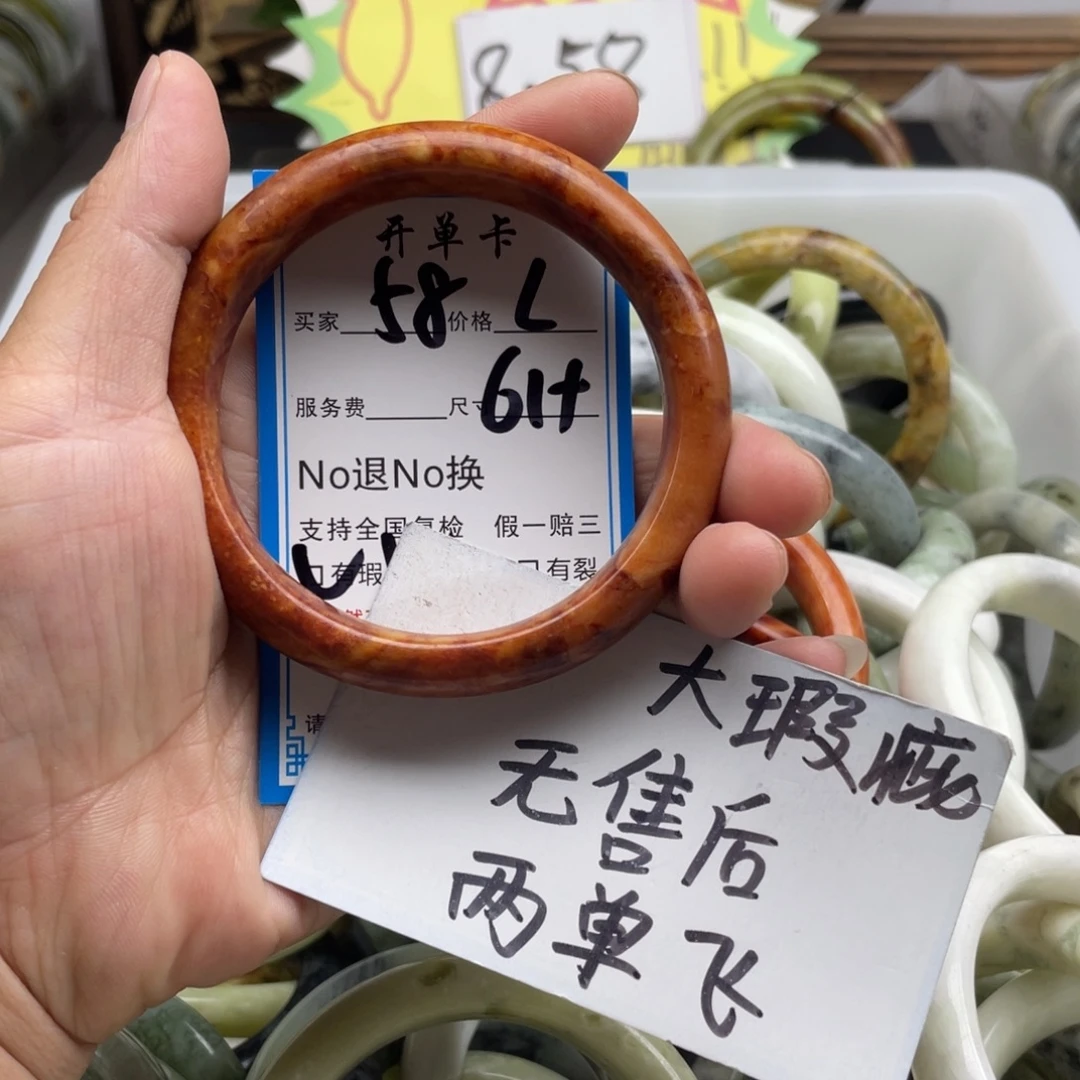 8.58 !!
开单卡
买家 58 价格 L
服务费 尺寸 61+
No退No换
支持全国复检 假一赔三
只有瑕 只有裂
请
大瑕疵
无售后
两单飞